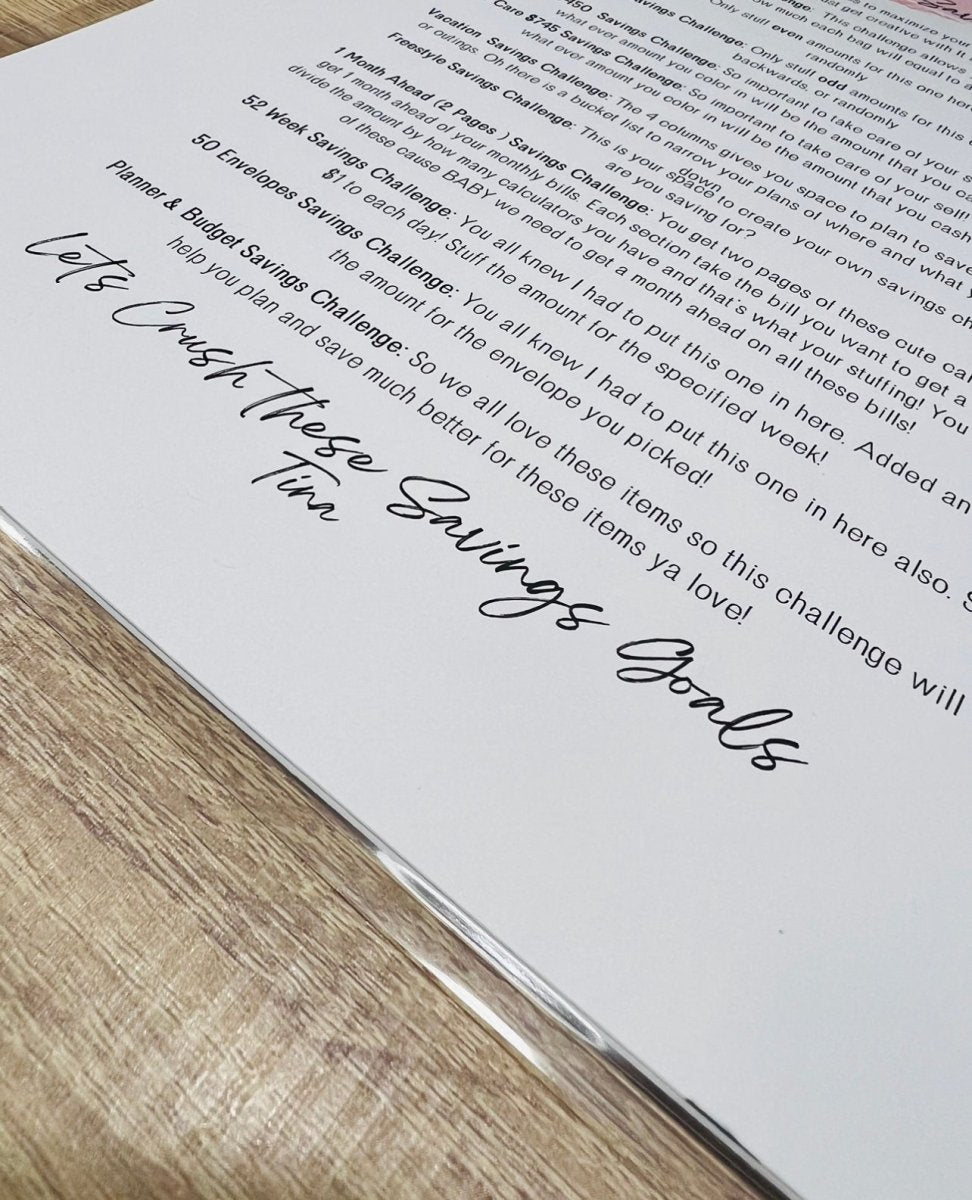 to maximize your
get creative with it
This challenge allows
much each bag will equal to
Only stuff even amounts for this one
randomly
Challenge: Only stuff odd amounts for this
backwards, or randomly
450 Savings Challenge: So important to take care of your
what ever amount you color in will be the amount that you
Care $745 Savings Challenge: So important to take care of your self!
what ever amount you color in will be the amount that you cash
Vacation Savings Challenge: The 4 columns gives you space to plan to save
or outings. Oh there is a bucket list to narrow your plans of where and what
down
Freestyle Savings Challenge: This is your space to create your own savings
are you saving for?
1 Month Ahead (2 Pages ) Savings Challenge: You get two pages of these cute
get 1 month ahead of your monthly bills. Each section take the bill you want to get a
divide the amount by how many calculators you have and that's what your stuffing! You
of these cause BABY we need to get a month ahead on all these bills!
52 Week Savings Challenge: You all knew I had to put this one in here. Added an
$1 to each day! Stuff the amount for the specified week!
50 Envelopes Savings Challenge: You all knew I had to put this one in here also.
the amount for the envelope you picked!
Planner & Budget Savings Challenge: So we all love these items so this challenge will
help you plan and save much better for these items ya love!
Let's Crush These Savings Goals
Tina